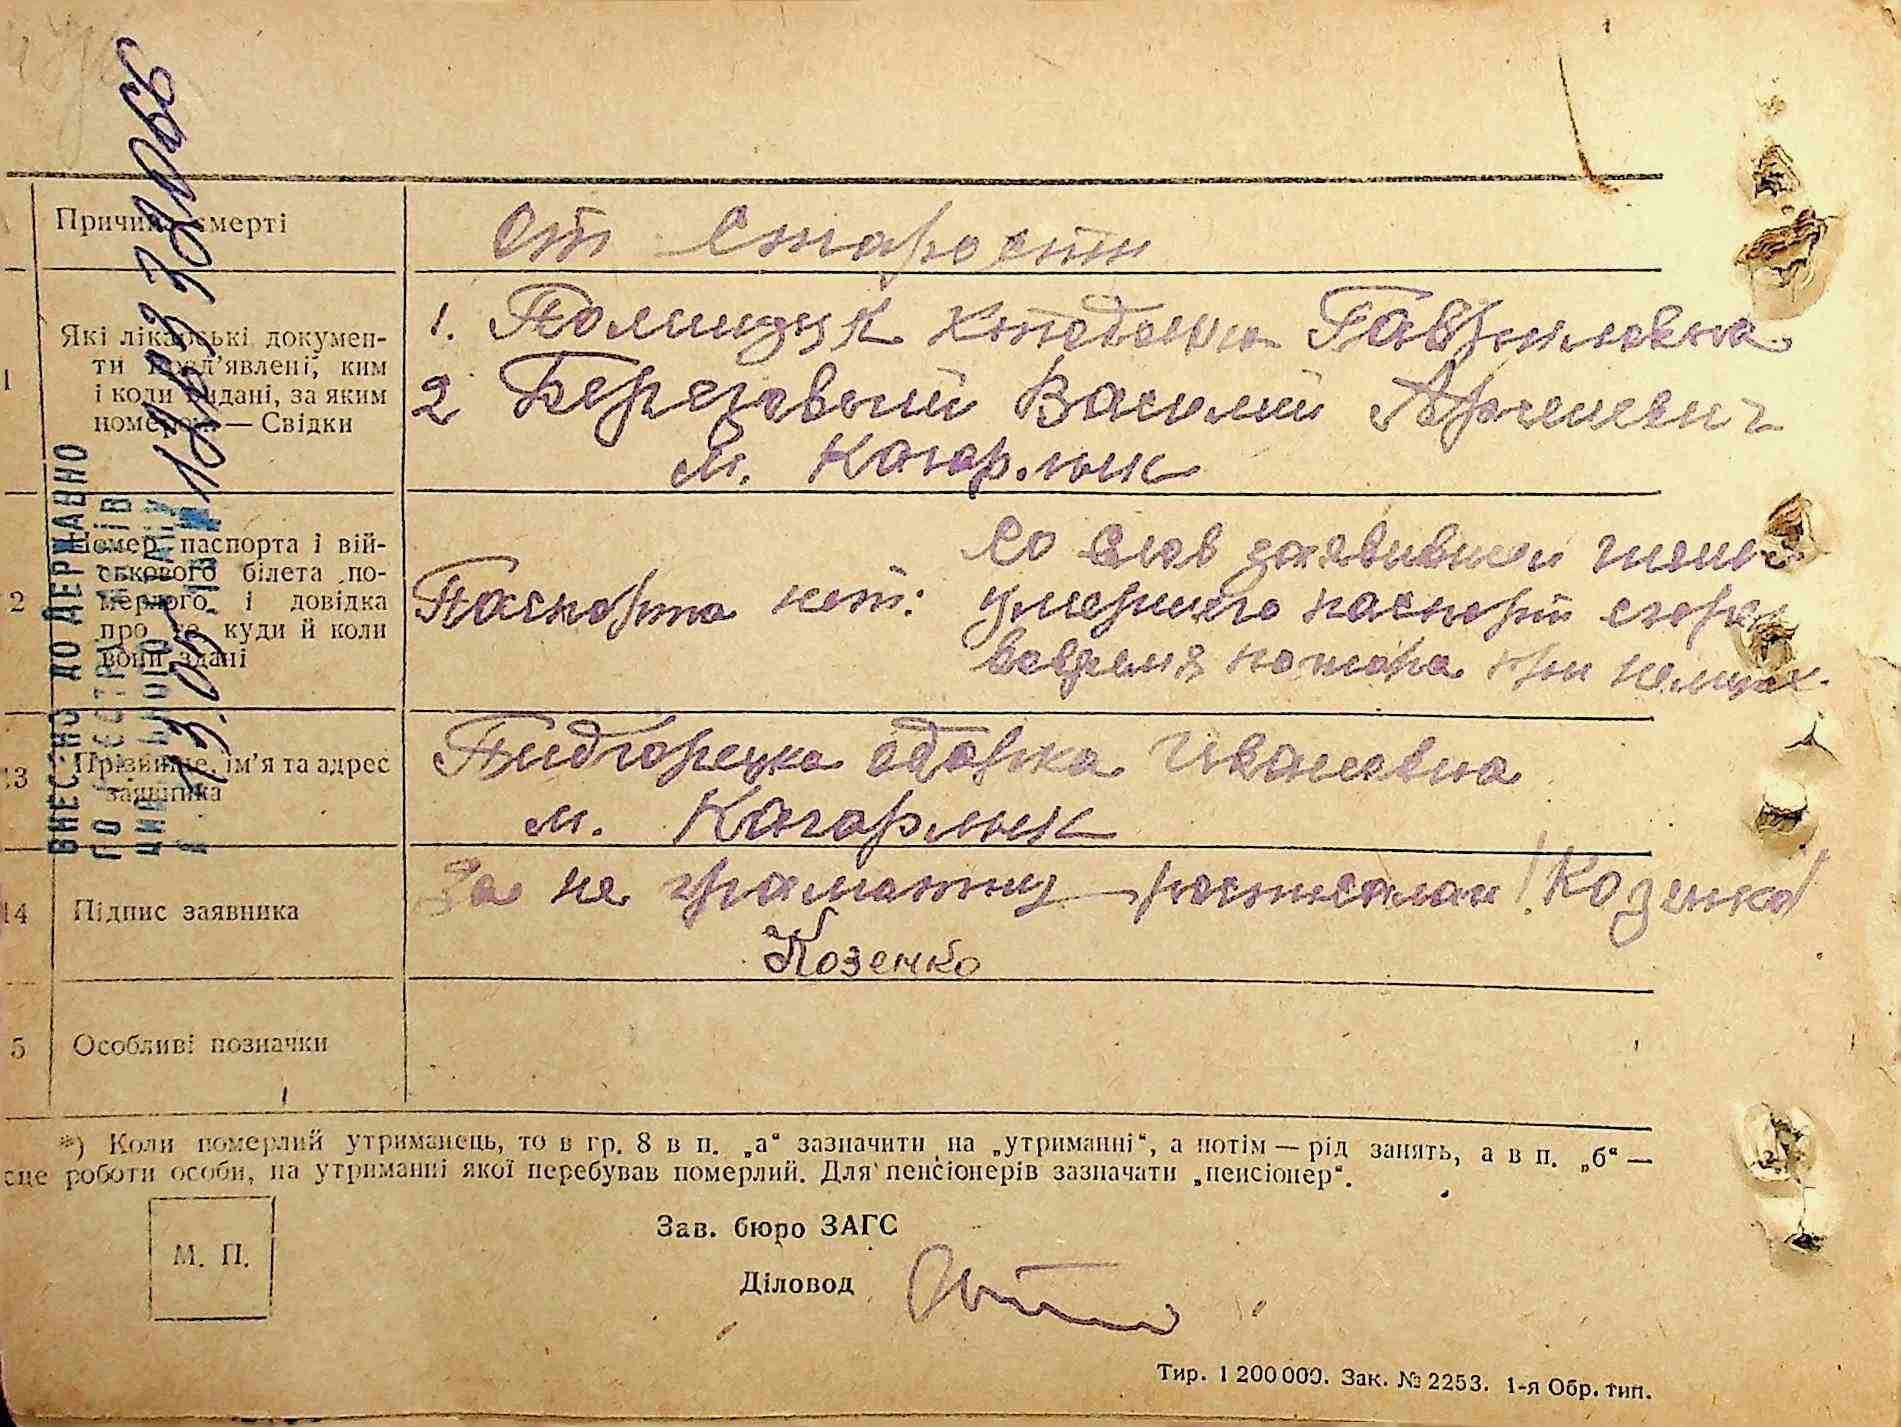 Причина смерті
От Старости
11
Які лікарські докумен-
ти пред'явлені, ким
і коли видані, за яким
номером — Свідки
1. Полищук Гавриловна
2 Березовый Василий Арсеневич
м. Кагарлык
12
Номер паспорта і вій-
ськового білета по-
мерлого і довідка
про те куди й коли
вони здані
Паспорта нет:
Со слов заявившей жены
умершего паспорт сгорел
вовремя пожара при немцах.
13
Прізвище, ім'я та адрес
заявника
Пидгорецка Одарка Ивановна
м. Кагарлык
14
Підпис заявника
За не граматну росписалась /Козенко/
Козенко
5
Особливі позначки
*) Коли померлий утриманець, то в гр. 8 в п. „а“ зазначити на „утриманні“, а потім — рід занять, а в п. „б“ —
сце роботи особи, на утриманні якої перебував померлий. Для пенсіонерів зазначати „пенсіонер“.
М. П.
Зав. бюро ЗАГС
Діловод
Тир. 1 200 000. Зак. № 2253. 1-я Обр. тип.
ВНЕСЕНО ДО ДЕРЖАВНО
ГО РЕЄСТРУ АКТІВ
ЦИВІЛЬНОГО СТАНУ